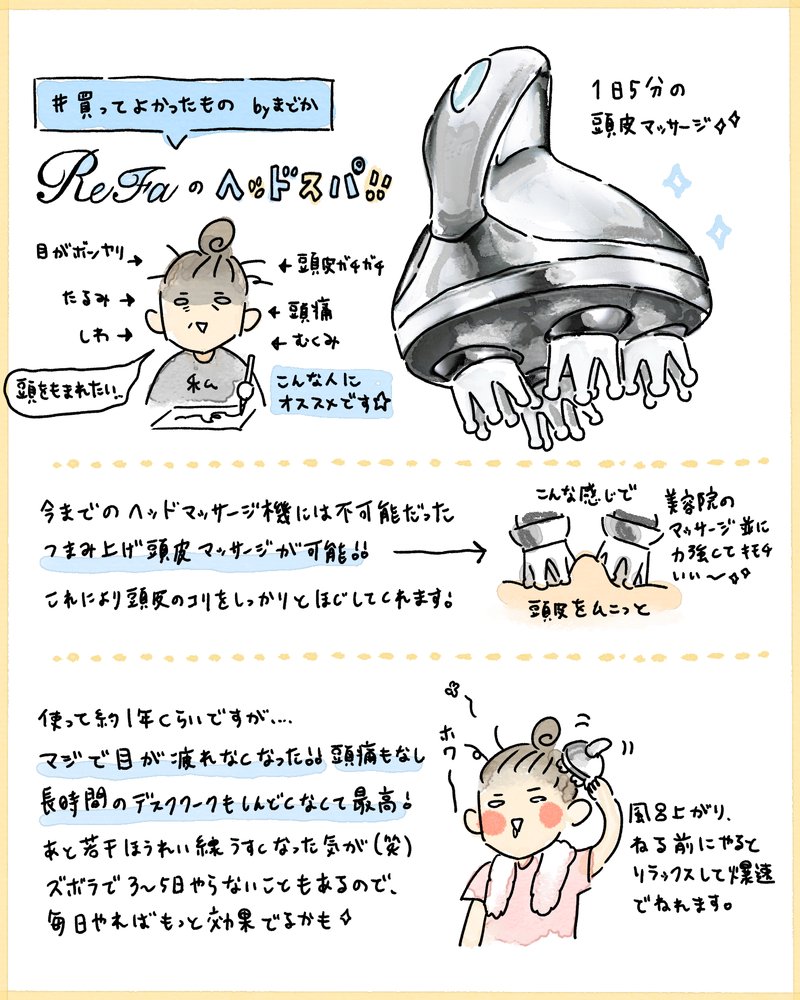 #買ってよかったもの byまどか
ReFaのヘッドスパ!!
1日5分の
頭皮マッサージ
目がボンヤリ
たるみ
しわ
頭皮ガチガチ
頭痛
むくみ
頭をもまれたい..
私
こんな人に
オススメです☆
今までのヘッドマッサージ機には不可能だった
つまみ上げ頭皮マッサージが可能!!
これにより頭皮のコリをしっかりとほぐしてくれます!
こんな感じで
頭皮をムニっと
美容院の
マッサージ並に
力強くてキモチ
いい〜
使って約1年くらいですが....
マジで目が疲れなくなった!! 頭痛もなし
長時間のデスクワークもしんどくなくて最高!
あと若干ほうれい線うすくなった気が(笑)
ズボラで3〜5日やらないこともあるので、
毎日やればもっと効果でるかも
ホワ〜
風呂上がり、
ねる前にやると
リラックスして爆速
でねれます。